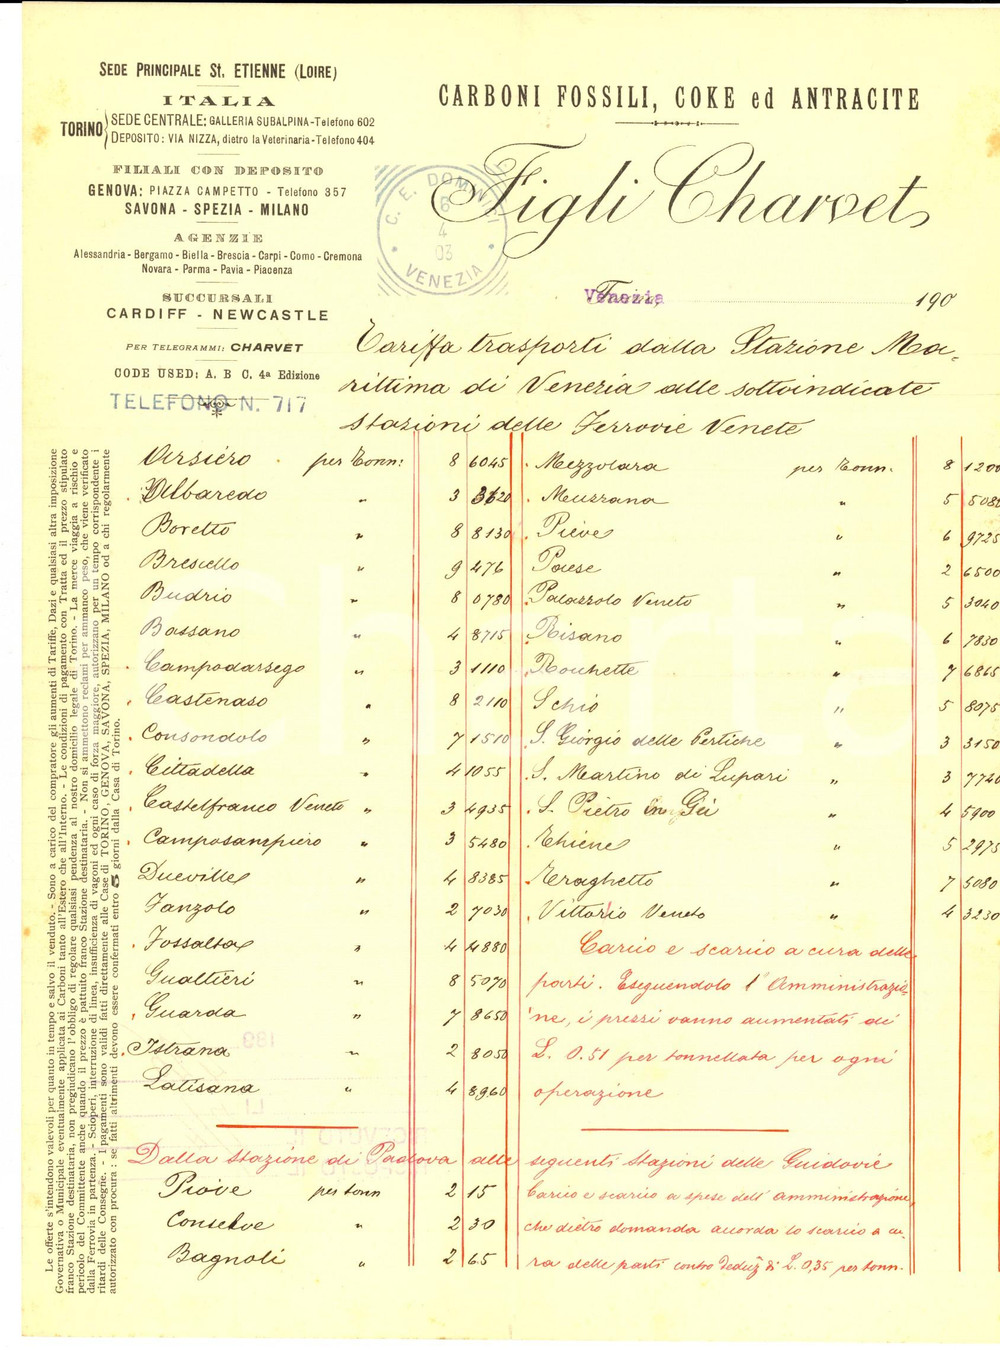 SEDE PRINCIPALE St. ETIENNE (LOIRE)
ITALIA
TORINO
SEDE CENTRALE: GALLERIA SUBALPINA - Telefono 602
DEPOSITO: VIA NIZZA, dietro la Veterinaria - Telefono 404
FILIALI CON DEPOSITO
GENOVA: PIAZZA CAMPETTO - Telefono 357
SAVONA - SPEZIA - MILANO
AGENZIE
Alessandria - Bergamo - Biella - Brescia - Carpi - Como - Cremona
Novara - Parma - Pavia - Piacenza
SUCCURSALI
CARDIFF - NEWCASTLE
PER TELEGRAMMI: CHARVET
CODE USED: A. B C. 4a Edizione
TELEFONO N. 717
CARBONI FOSSILI, COKE ed ANTRACITE
Figli Charvet
C. E. DOMINI
6
4
03
VENEZIA
Venezia 190
Tariffa trasporti dalla Stazione Ma-
rittima di Venezia alle sottoindicate
stazioni delle Ferrovie Venete
Arsiero per Tonn: 8 6045
Albaredo " 3 3620
Boretto " 8 8130
Brescello " 9 476
Budrio " 8 0780
Bassano " 4 8715
Campodarsego " 3 1110
Castenaso " 8 2110
Consondolo " 7 1510
Cittadella " 4 1055
Castelfranco Veneto " 3 4935
Camposampiero " 3 5480
Dueville " 4 8385
Fanzolo " 2 7030
Fossalta " 4 4880
Gualtieri " 8 5070
Guarda " 7 8650
Istrana " 2 8050
Latisana " 4 8960
Mezzolara per Tonn. 8 1200
Muzzana " 5 5080
Pieve " 6 9725
Paese " 2 6500
Palazzolo Veneto " 5 3040
Risano " 6 7830
Rocchette " 7 6865
Schio " 5 8075
S. Giorgio delle Pertiche " 3 3150
S. Martino di Lupari " 3 7720
S. Pietro in Gù " 4 5900
Thiene " 5 2975
Traghetto " 7 5080
Vittorio Veneto " 4 3230
Carico e scarico a cura delle
parti. Eseguendolo l'Amministrazio-
ne, i prezzi vanno aumentati di
L. 0.51 per tonnellata per ogni
operazione
Dalla stazione di Padova alle seguenti stazioni delle Guidovie
Piove per tonn 2 15
Conselve " 2 30
Bagnoli " 2 65
Carico e scarico a spese dell'amministrazione,
che dietro domanda accorda lo scarico a cu-
ra delle parti contro deduz. di L. 0,35 per tonn.
Le offerte s'intendono valevoli per quanto in tempo e salvo il venduto. - Sono a carico del compratore gli aumenti di Tariffe, Dazi e qualsiasi altra imposizione
Governativa o Municipale eventualmente applicata ai Carboni tanto all'Estero che all'Interno. - Le condizioni di pagamento con Tratta ed il prezzo stipulato
franco Stazione destinataria, non pregiudicano l'obbligo di regolare qualsiasi pendenza al nostro domicilio legale di Torino. - La merce viaggia a rischio e
pericolo del Committente anche quando il prezzo è pattuito franco Stazione destinataria. - Non si ammettono reclami per ammanco peso, che viene verificato
dalla Ferrovia in partenza. - Scioperi, interruzione di linea, insufficienza di vagoni ed ogni caso di forza maggiore, autorizzano per un tempo corrispondente i
ritardi delle Consegne. - I pagamenti sono validi fatti direttamente alle Case di TORINO, GENOVA, SAVONA, SPEZIA, MILANO od a chi regolarmente
autorizzato con procura: se fatti altrimenti devono essere confermati entro 5 giorni dalla Casa di Torino.